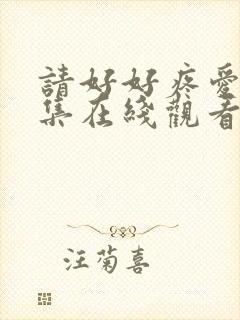 請好好疼愛
集在綫觀看
汪菊喜